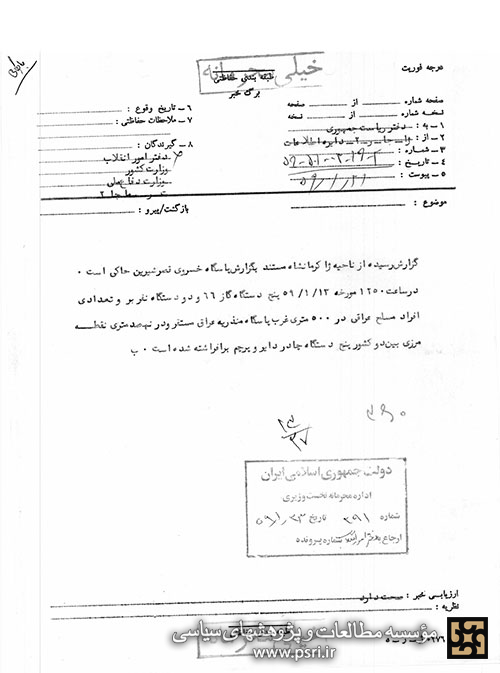 بایگانی
خیلی محرمانه
طبقه بندی حفاظتی
برگ خبر
درجه فوریت
صفحه شماره ............ از ............ صفحه
نسخه شماره ............ از ............ نسخه
۱ ـ به : دفتر ریاست جمهوری
۲ ـ از : ژا ـ جا ـ ر ـ ۲ ـ دایره اطلاعات
۳ ـ شماره :
۴ ـ تاریخ :
۵ ـ پیوست :
موضوع :
۶ ـ تاریخ وقوع :
۷ ـ ملاحظات حفاظتی :
۸ ـ گیرندگان :
دفتر امور انقلاب
وزارت کشور
وزارت دفاع ملی
بازگشت/پیرو :
گزارش رسیده از ناحیه ژا کرمانشاه مستند بگزارش پاسگاه خسروی قصرشیرین حاکی است ۰
در ساعت ۱۲۵۰ مورخه ۵۹/۱/۱۳ پنج دستگاه گاز ۶۶ و دو دستگاه نفربر و تعدادی
افراد مسلح عراقی در ۵۰۰ متری غرب پاسگاه منذریه عراق مستقر و در نهصد متری نقطه
مرزی بین دو کشور پنج دستگاه چادر دایر و پرچم برافراشته شده است ۰ ب
۲۹۰
۱۳
۳۷
دولت جمهوری اسلامی ایران
اداره محرمانه نخست وزیری
شماره ۲۹۱ تاریخ ۵۹/۱/۲۳
ارجاع به دفتر امور انقلاب شماره پرونده
ارزیابی خبر : صحت دارد
نظریه :
مؤسسه مطالعات و پژوهشهای سیاسی
www.psri.ir